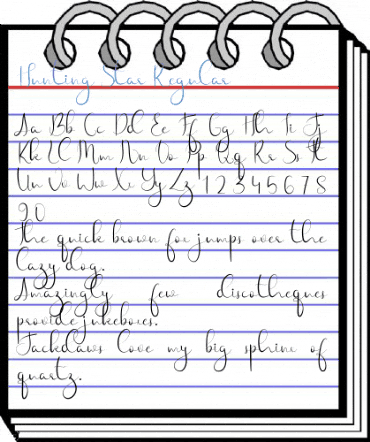 Hunting Star Regular
Aa Bb Cc Dd Ee Ff Gg Hh Ii Jj
Kk Ll Mm Nn Oo Pp Qq Rr Ss Tt
Uu Vv Ww Xx Yy Zz 1 2 3 4 5 6 7 8
9 0
The quick brown fox jumps over the
lazy dog.
Amazingly few discotheques
provide jukeboxes.
Jackdaws love my big sphinx of
quartz.